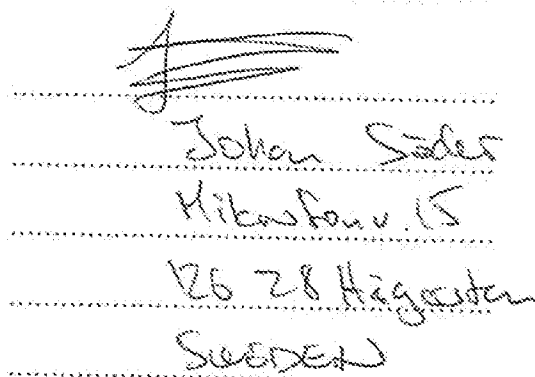 Johan Söder
Mikrofonv. 15
126 28 Hägersten
SWEDEN